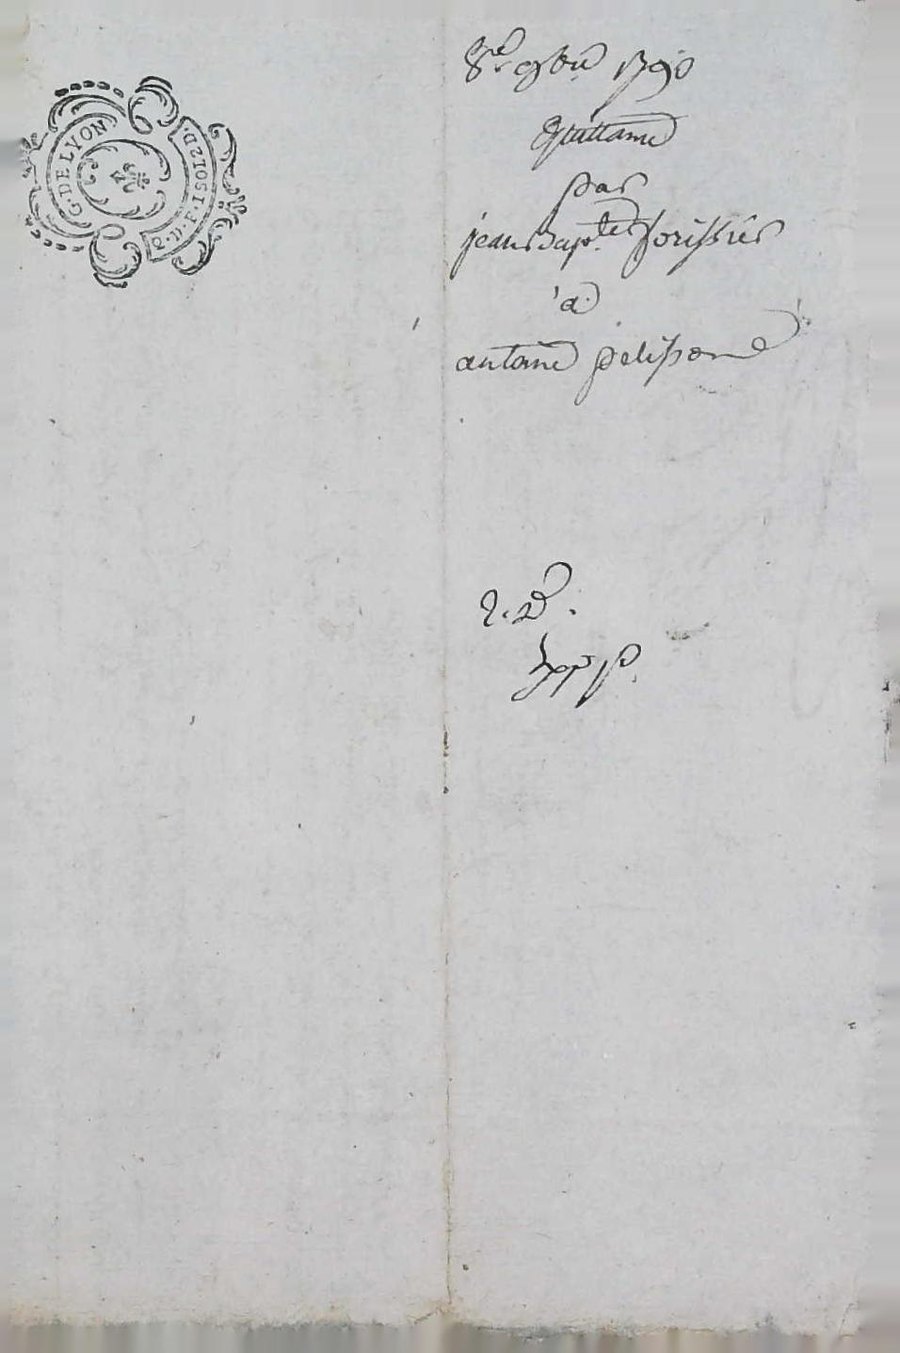 G. DE LYON
2. SOLS. F. D. P.
8re 9bre 1790
Quittance
par
jean Bapte forissier
à
antoine pelissone
2. d.